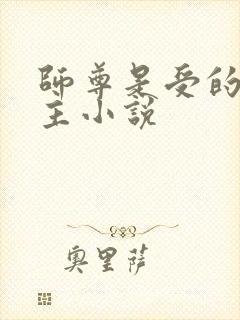 師尊是受的
主小說
奧里薩